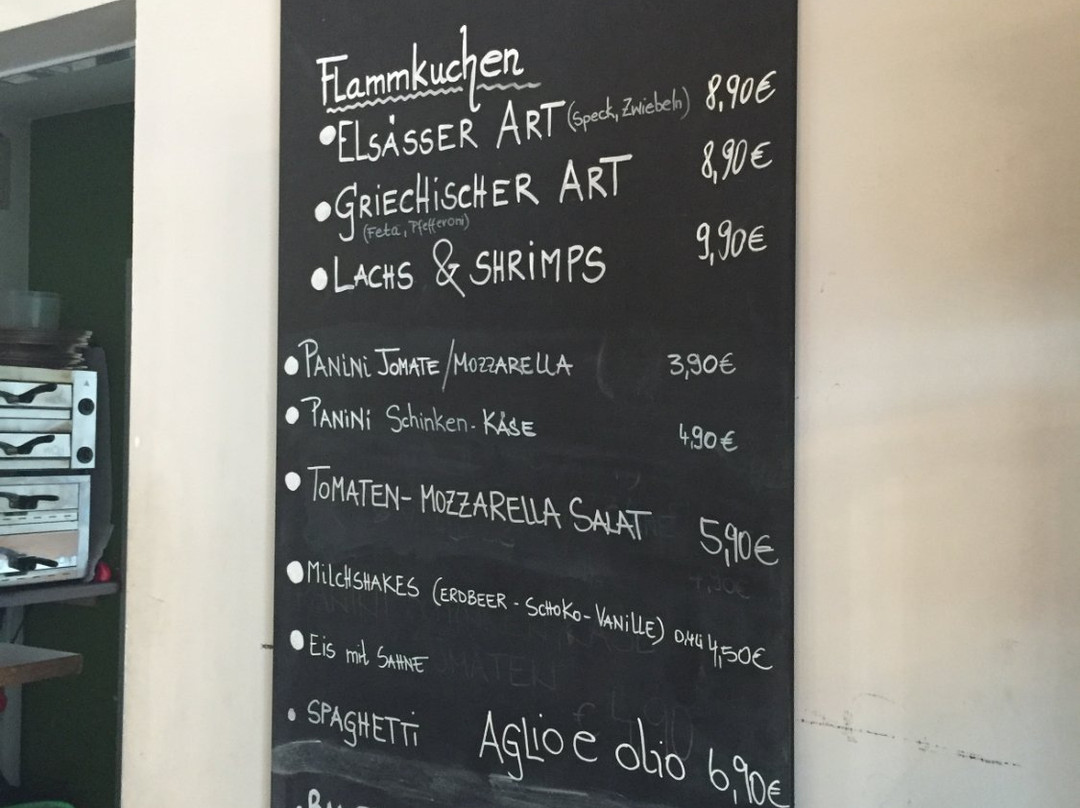 Flammkuchen
• ELSÄSSER ART (Speck, Zwiebeln) 8,90€
• GRIECHISCHER ART 8,90€
(Feta, Pfefferoni)
• LACHS & SHRIMPS 9,90€
• PANINI TOMATE/MOZZARELLA 3,90€
• PANINI Schinken-KÄSE 4,90€
• TOMATEN-MOZZARELLA SALAT 5,90€
• MILCHSHAKES (ERDBEER - SCHOKO - VANILLE) 0,4l 4,50€
• EIS mit SAHNE
• SPAGHETTI AGLIO e olio 6,90€